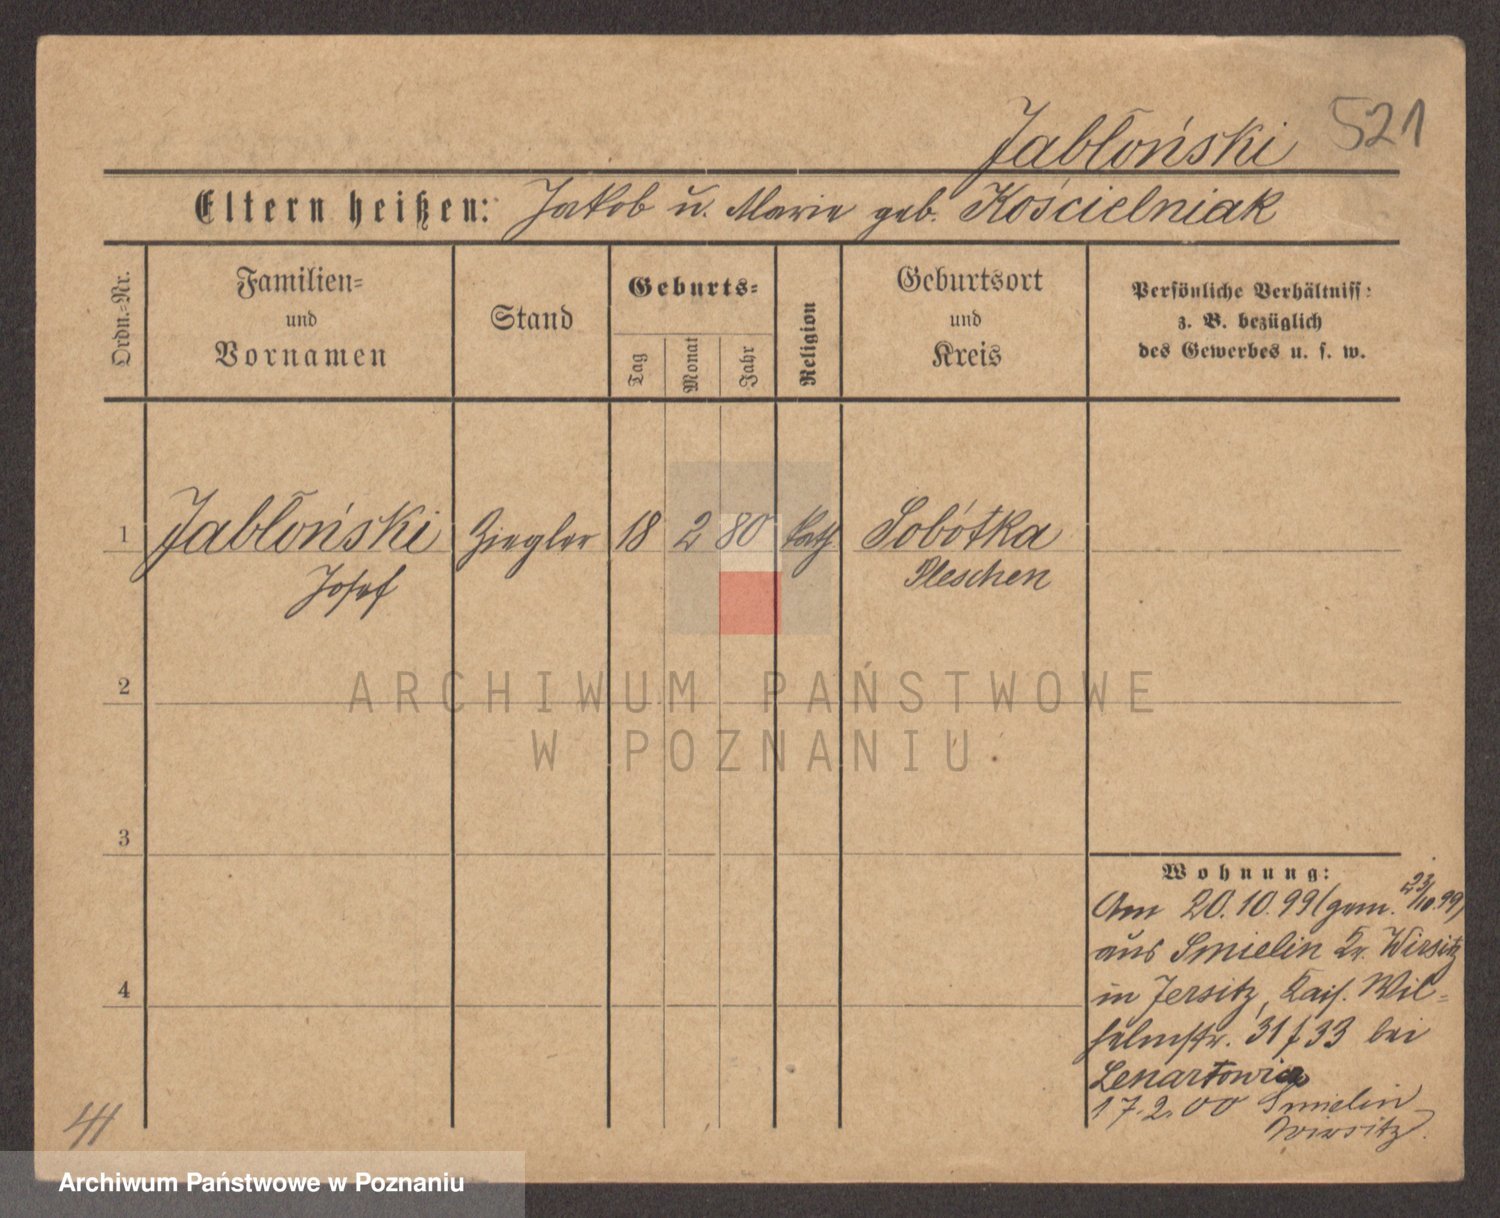 Jabłoński 521
Eltern heißen: Jakob u. Marie geb. Kościelniak
Ordn.-Nr.
Familien-
und
Vornamen
Stand
Geburts-
Tag
Monat
Jahr
Religion
Geburtsort
und
Kreis
Persönliche Verhältniss:
z. B. bezüglich
des Gewerbes u. s. w.
1 Jabłoński Ziegler 18 2 80 kath Sobótka
Josef Pleschen
2
ARCHIWUM PAŃSTWOWE
W POZNANIU
3
Wohnung:
Am 20.10.99 (gem. 23/10.99)
aus Smielin Kr. Wirsitz
in Jersitz, Kais. Wil-
4
helmstr. 31/33 bei
Lenartowicz
17.2.00 Smielin
Wirsitz.
Archiwum Państwowe w Poznaniu